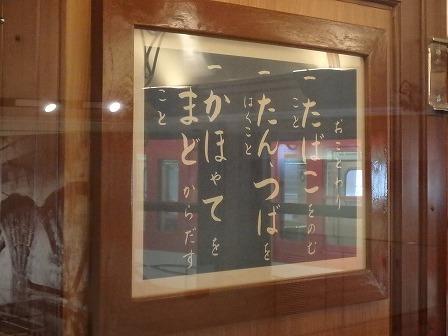 おことわり
一たばこをのむ
こと
一たん、つばを
はくこと
一かほやてを
まどからだす
こと